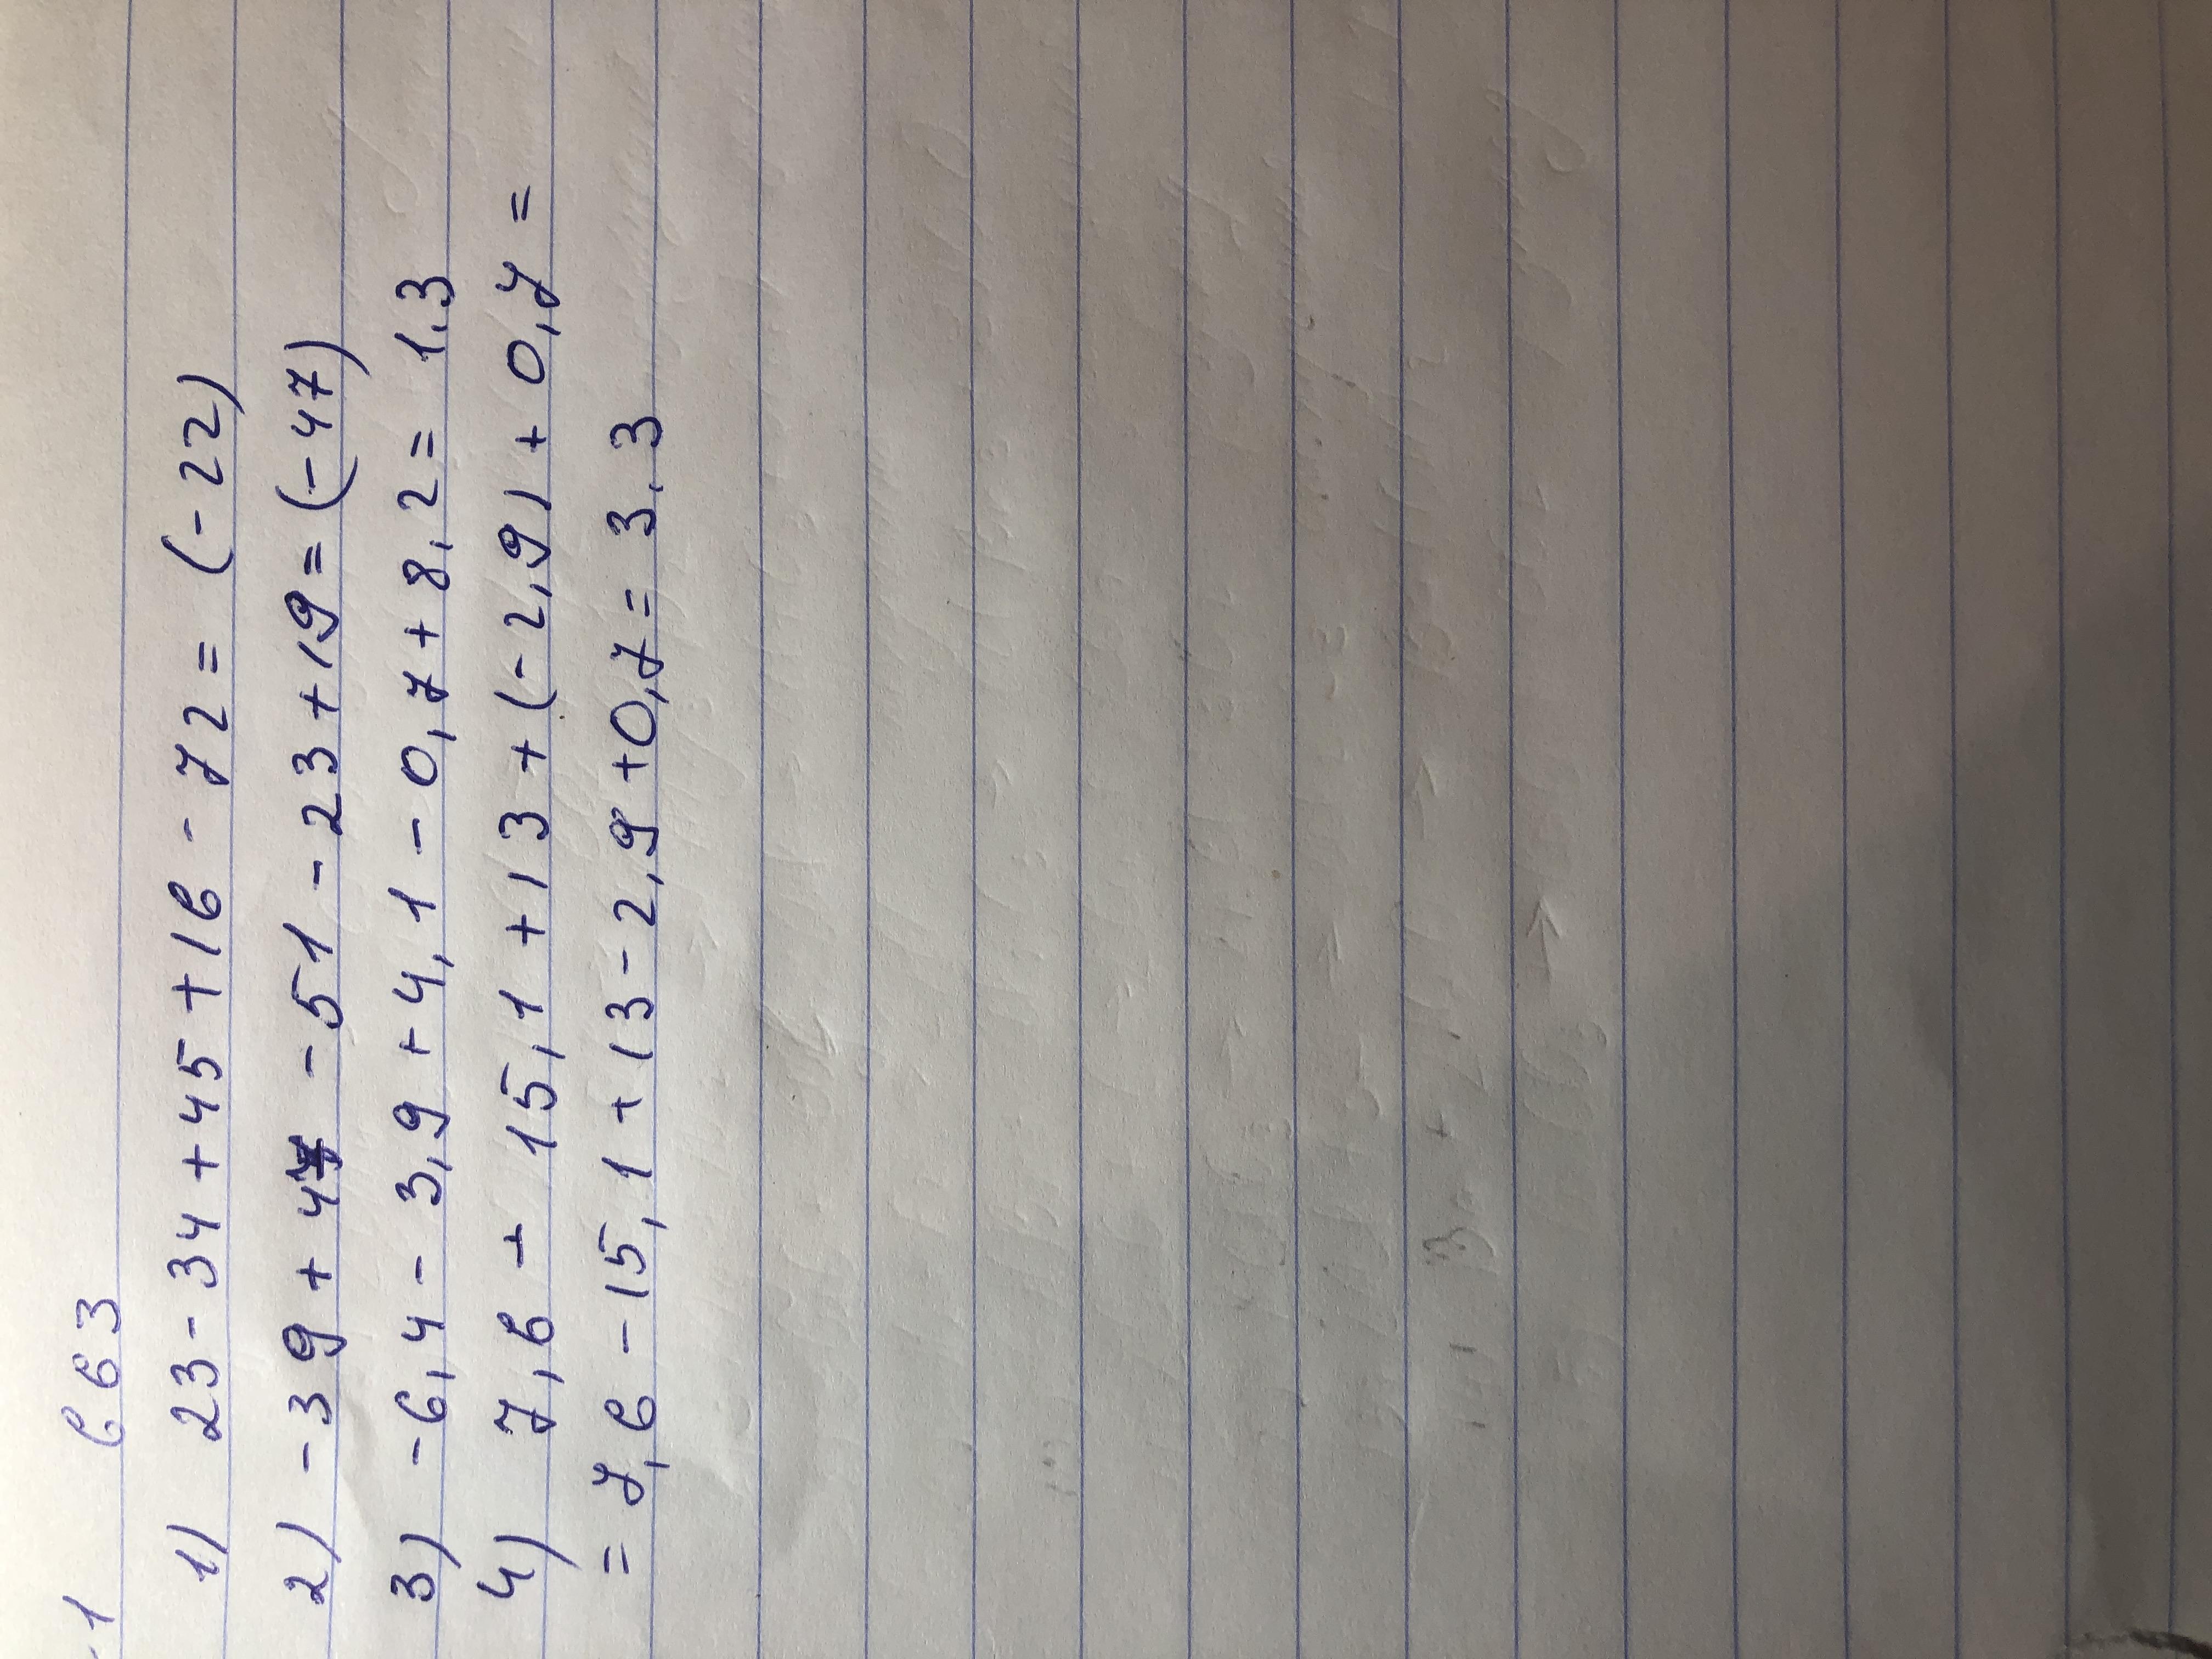 1 663
1) 23 - 34 + 45 + 16 - 72 = (-22)
2) -39 + 47 - 51 - 23 + 19 = (-47)
3) -6,4 - 3,9 + 4,1 - 0,7 + 8,2 = 1,3
4) 7,6 - 15,1 + 13 + (-2,9) + 0,7 =
= 7,6 - 15,1 + 13 - 2,9 + 0,7 = 3,3